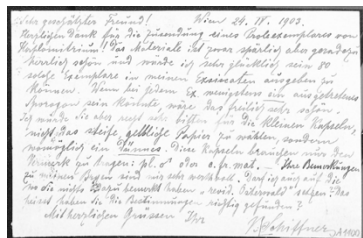 Sehr geschätzter Freund! Wien 24. IV. 1903.
Herzlichen Dank für die Zusendung eines Probeexemplares von
Haplomitrium! Das Materiale ist zwar spärlich aber geradezu
herrlich schön und würde ich sehr glücklich sein 80
solche Exemplare in meinen Exsiccaten ausgeben zu
können. Wenn bei jedem Ex. wenigstens ein ausgetretenes
Sporogon sein könnte, wäre das freilich sehr schön.
Ich würde Sie aber recht sehr bitten für die kleinen Kapseln,
nicht das steife, gelbliche Papier zu wählen, sondern
womöglich ein dünnes. Diese Kapseln brauchen nur den
Vermerk zu tragen: pl. ♂ oder ♀ pr. mat. Ihre Bemerkungen
zu meinen Bryen sind mir sehr wertvoll. Darf ich auf die
wo Sie nichts dazu bemerkt haben „revid. Paterwald" setzen? Das
heisst haben Sie die Bestimmungen richtig gefunden?
Mit herzlichen Grüssen Ihr
V. Schiffner